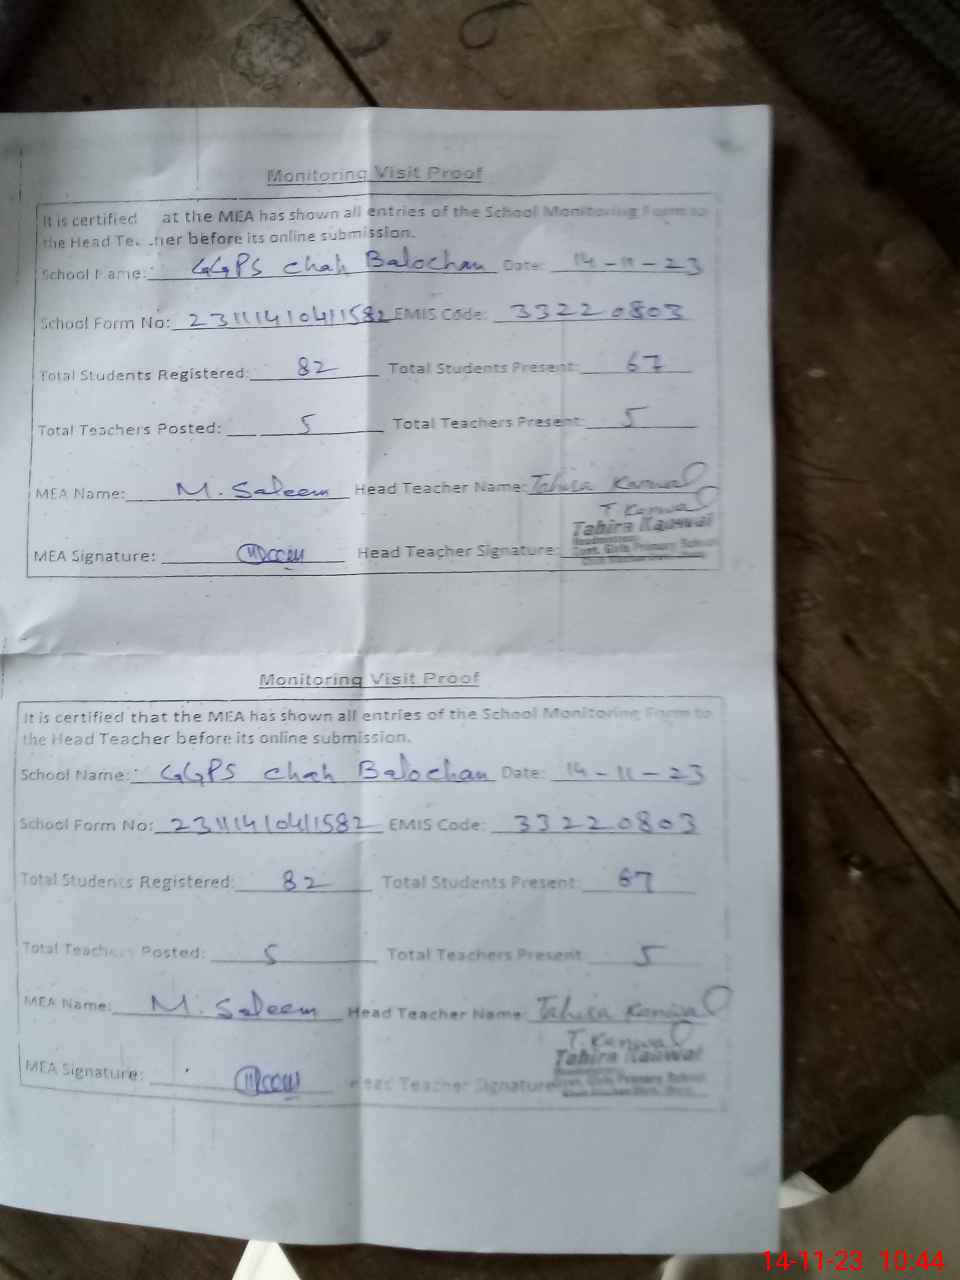 Monitoring Visit Proof
It is certified at the MEA has shown all entries of the School Monitoring Form to
the Head Teacher before its online submission.
School Name: GGPS Chah Balochan Date: 14-11-23
School Form No: 23111410411582 EMIS Code: 33220803
Total Students Registered: 82 Total Students Present: 67
Total Teachers Posted: 5 Total Teachers Present: 5
MEA Name: M. Saleem Head Teacher Name: Tahira Kanwal
T. Kanwal
Tahira Kanwal
MEA Signature: Head Teacher Signature:
Govt. Girls Primary School
Monitoring Visit Proof
It is certified that the MEA has shown all entries of the School Monitoring Form to
the Head Teacher before its online submission.
School Name: GGPS Chah Balochan Date: 14-11-23
School Form No: 23111410411582 EMIS Code: 33220803
Total Students Registered: 82 Total Students Present: 67
Total Teachers Posted: 5 Total Teachers Present 5
MEA Name: M. Saleem Head Teacher Name: Tahira Kanwal
T. Kanwal
Tahira Kanwal
MEA Signature: Head Teacher Signature
Govt. Girls Primary School
14-11-23 10:44